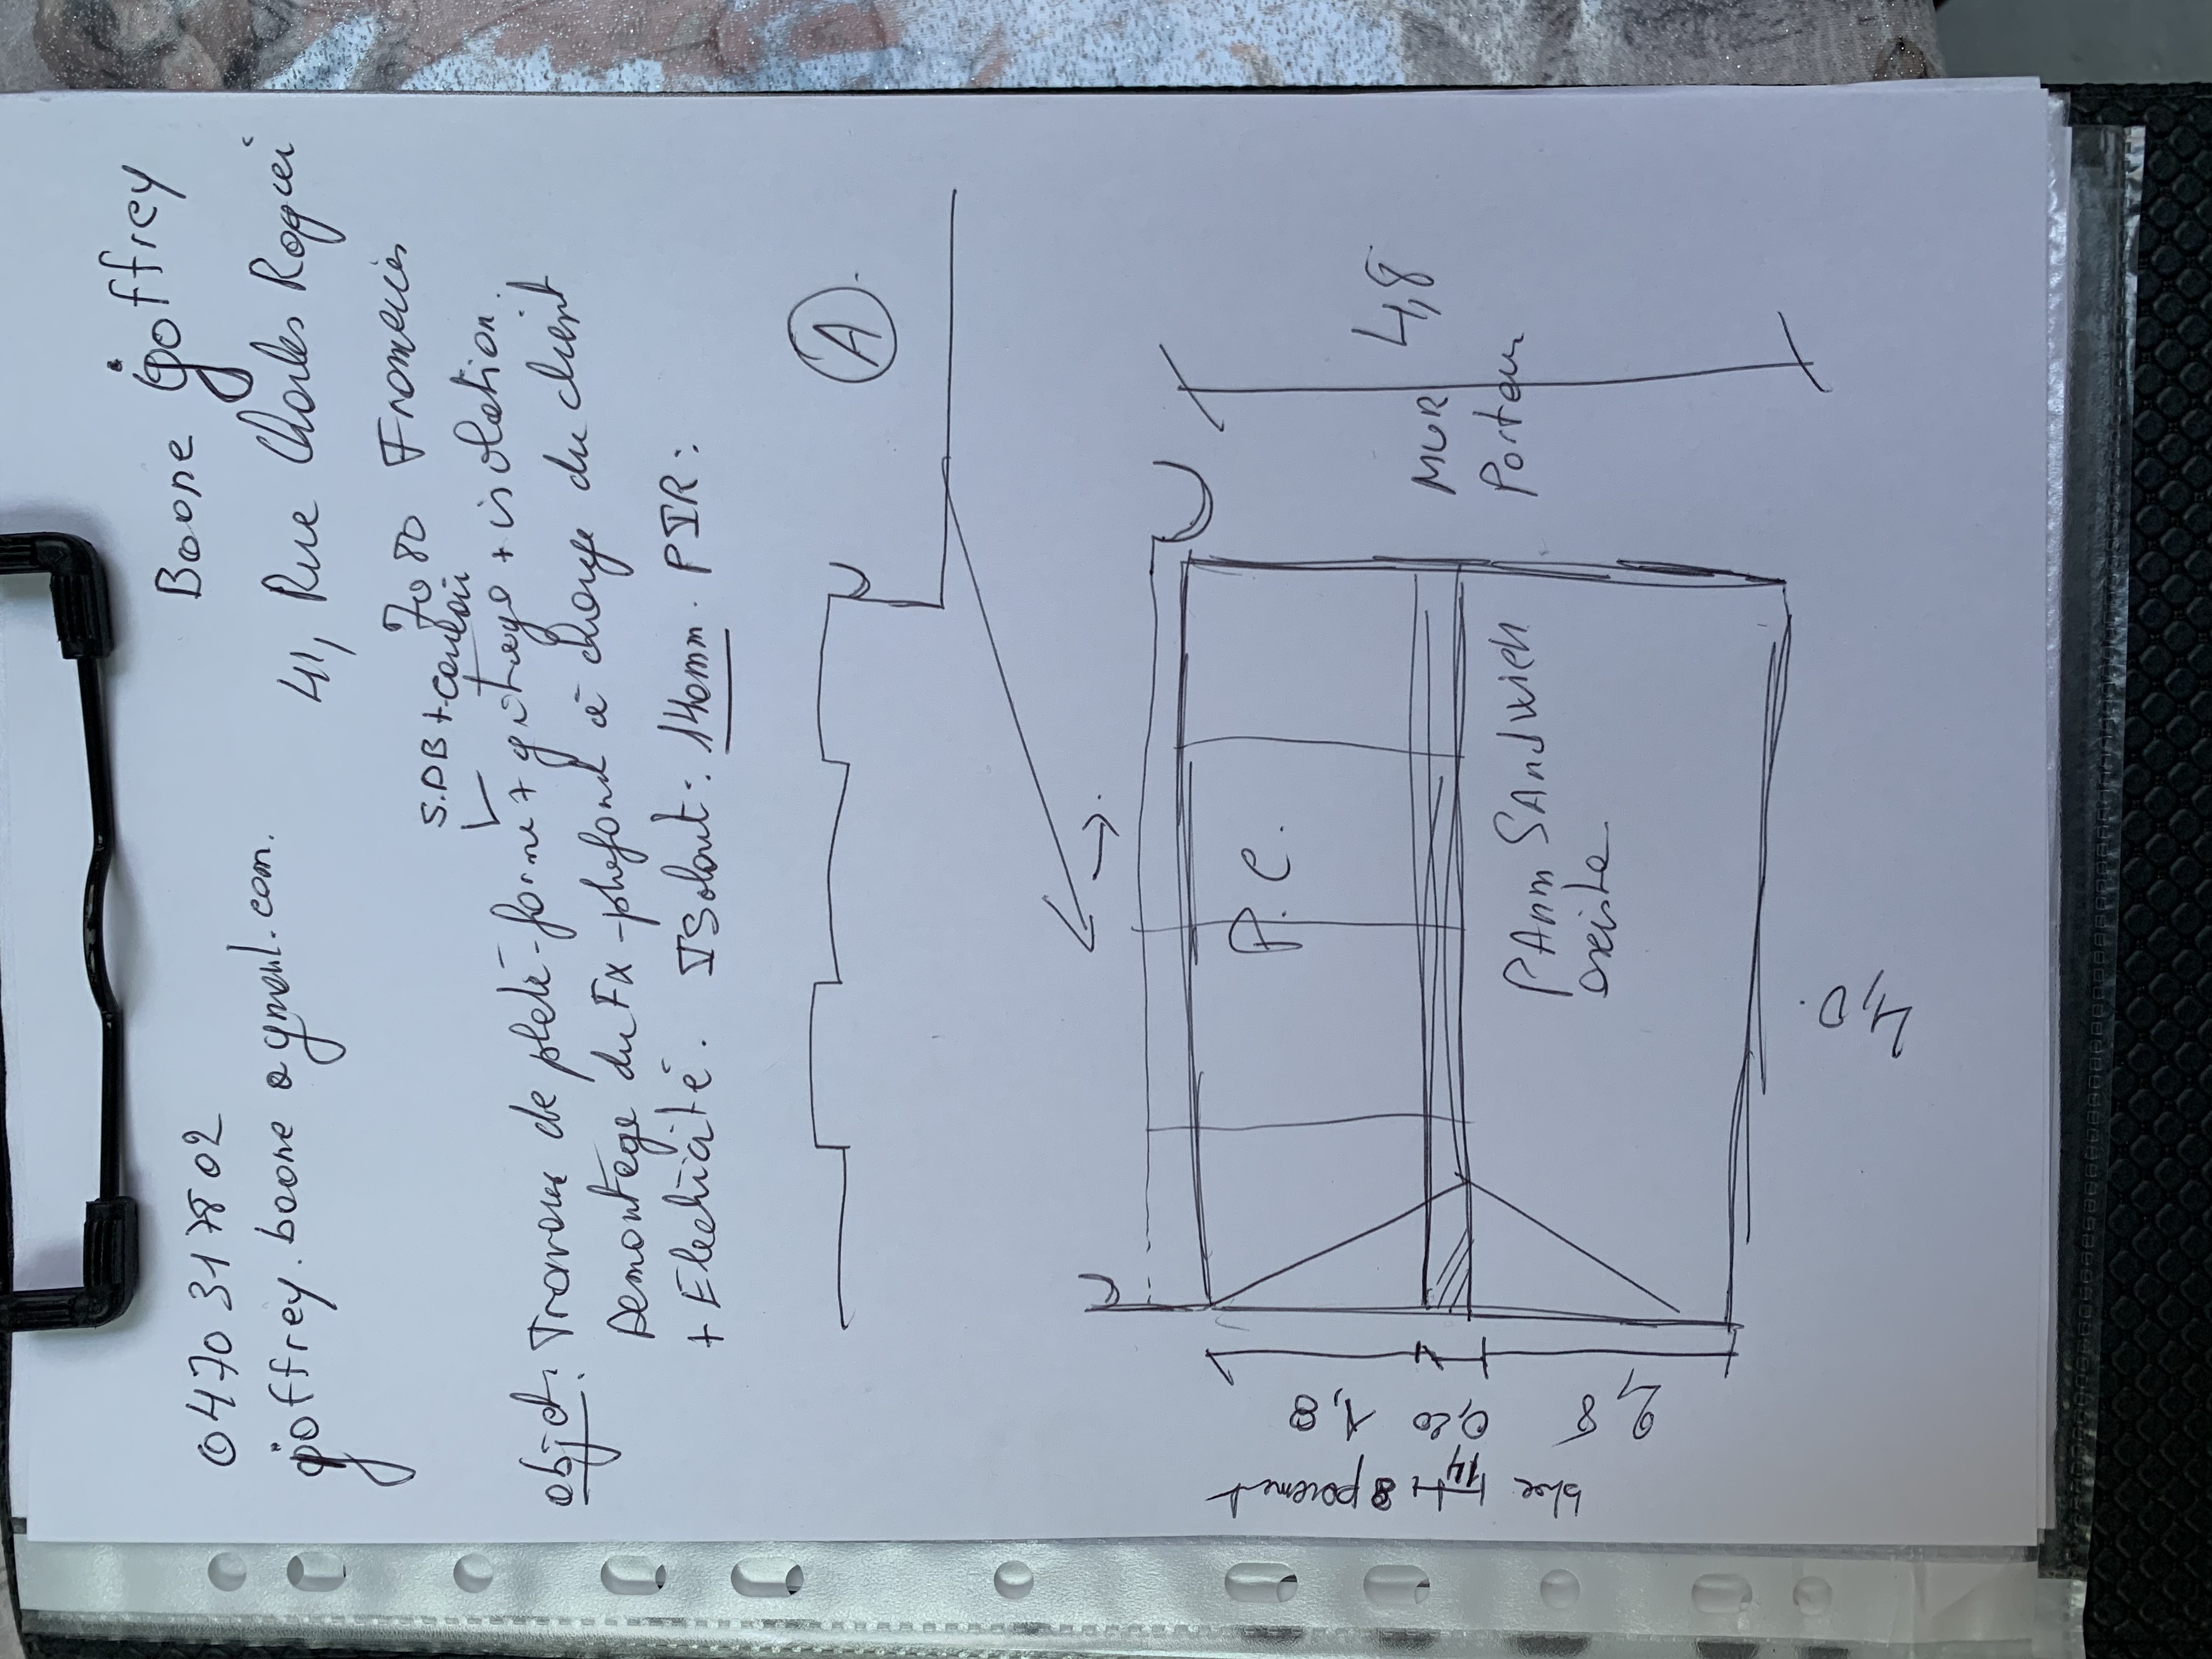 0470 31 78 02 Boone goffrey
goffrey.boone@gmail.com. 41, Rue Charles Rogier
7080 Frameries
S.DB + couloir
objet: Travaux de plate-forme + gitage + isolation.
Demontage du Fx-plafond à charge du client
+ Electricité. ISolant: 140mm. PIR:
A
4,8
MUR
Porteur
P.C.
PAnn SAndwich
existe
1,80
0,20
2,8
4,0
bloc 14 + parement